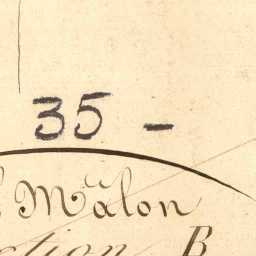 35 -
Malon
ction B